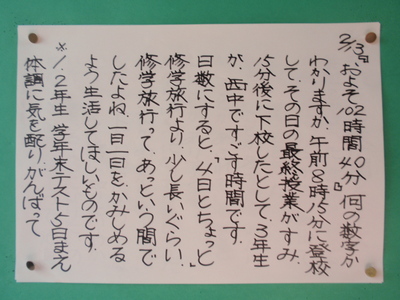 2/13『およそ102時間40分』何の数字か
わかりますか。午前8時15分に登校
して、その日の最終授業がすみ、
15分後に下校したとして、3年生
が、西中ですごす時間です。
日数にすると、「4日とちょっと」
修学旅行より、少し長いぐらい。
修学旅行って、あっという間で
したよね。一日一日を、かみしめる
よう生活してほしいものです。
※1.2年生 学年末テスト5日まえ
体調に気を配り、がんばって